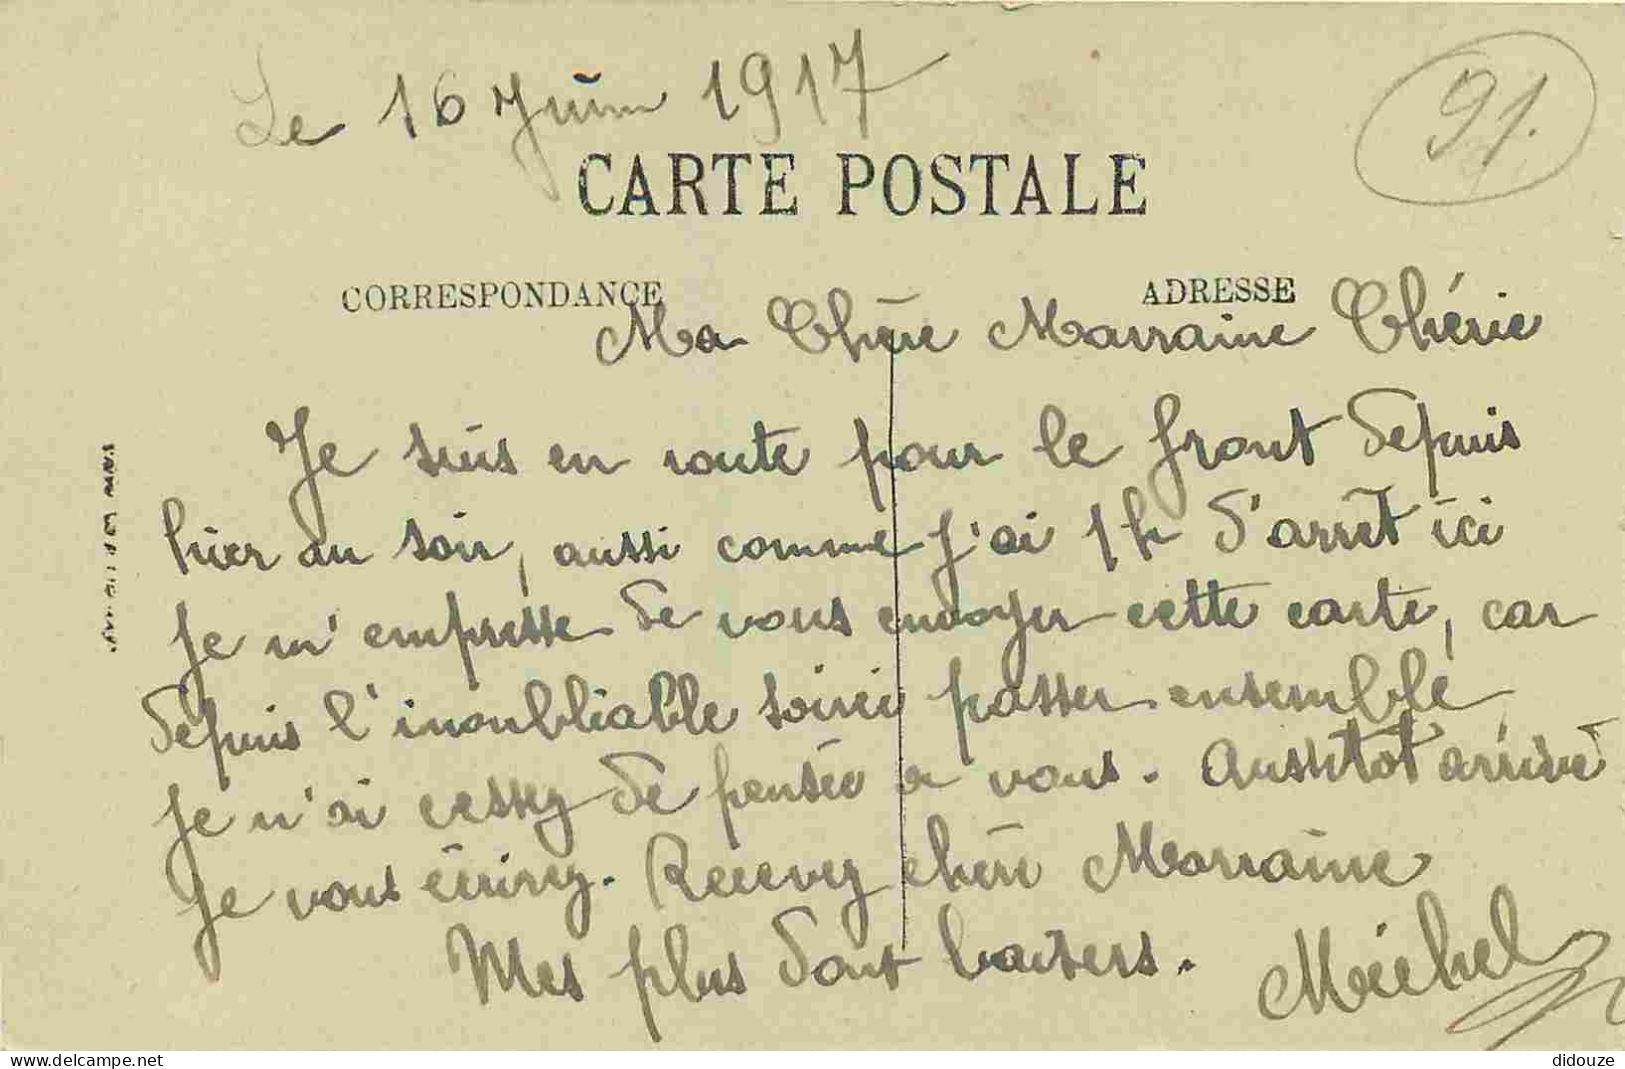 Le 16 Juin 1917
91.
CARTE POSTALE
CORRESPONDANCE
ADRESSE
Ma Chère Marraine Chérie
Je suis en route pour le front depuis
hier au soir, aussi comme j'ai 1h d'arret ici
je m'empresse de vous envoyer cette carte, car
depuis l'inoubliable soirée passer ensemblé
je n'ai cessez de pensée a vous. Aussitot arrivé
je vous écrirez. Recevez chère Marraine
Mes plus dout baisers. Michel
delcampe.net
didouze